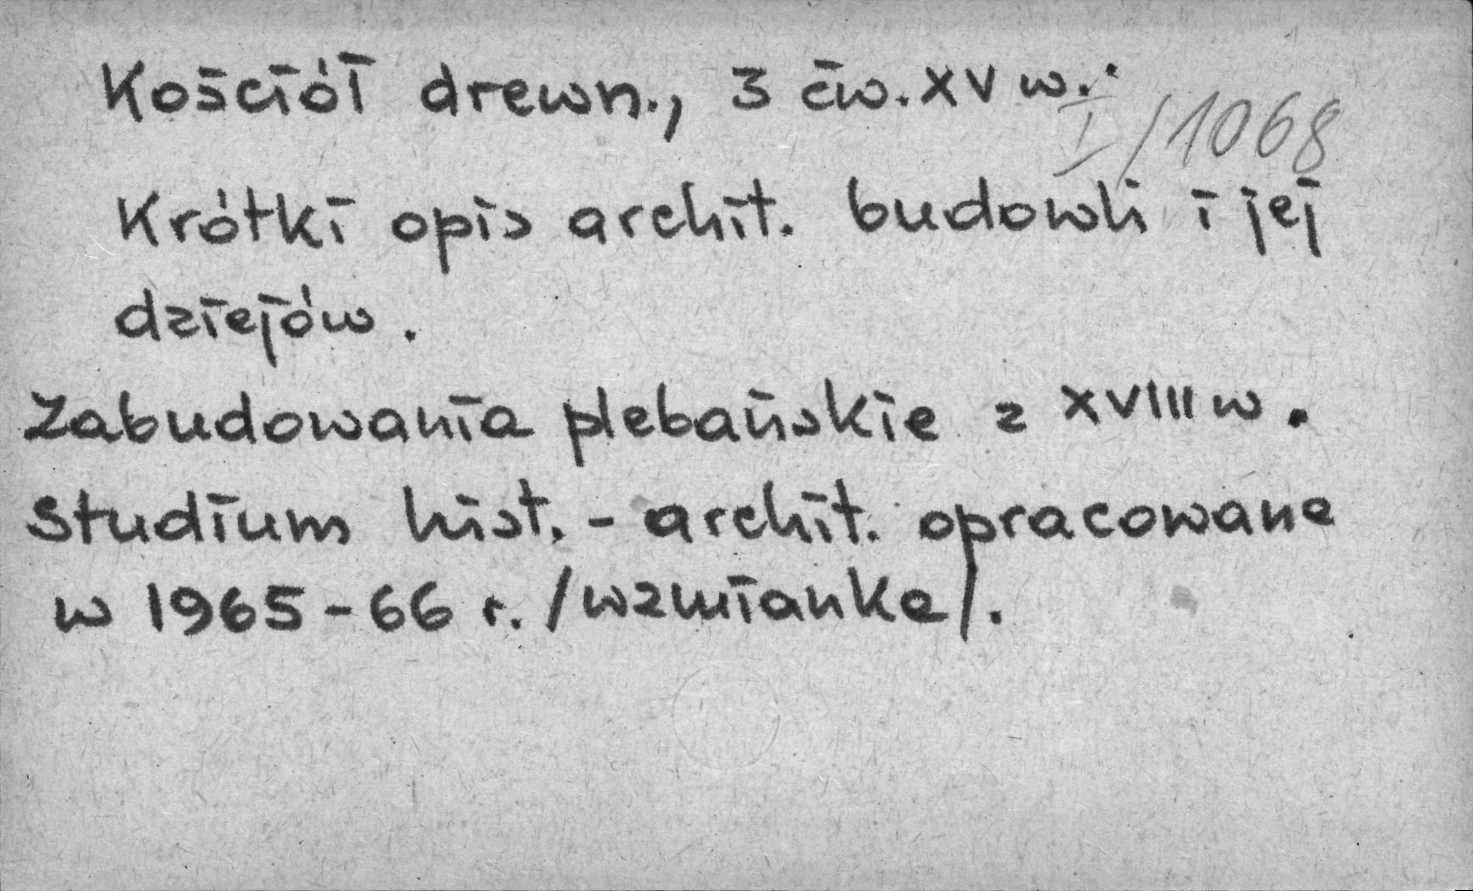 Kościół drewn., 3 ćw. XV w.:
I/1068
Krótki opis archit. budowli i jej
dziejów.
Zabudowania plebańskie z XVIII w.
Studium hist.- archit. opracowane
w 1965-66 r. /wzmianka/.